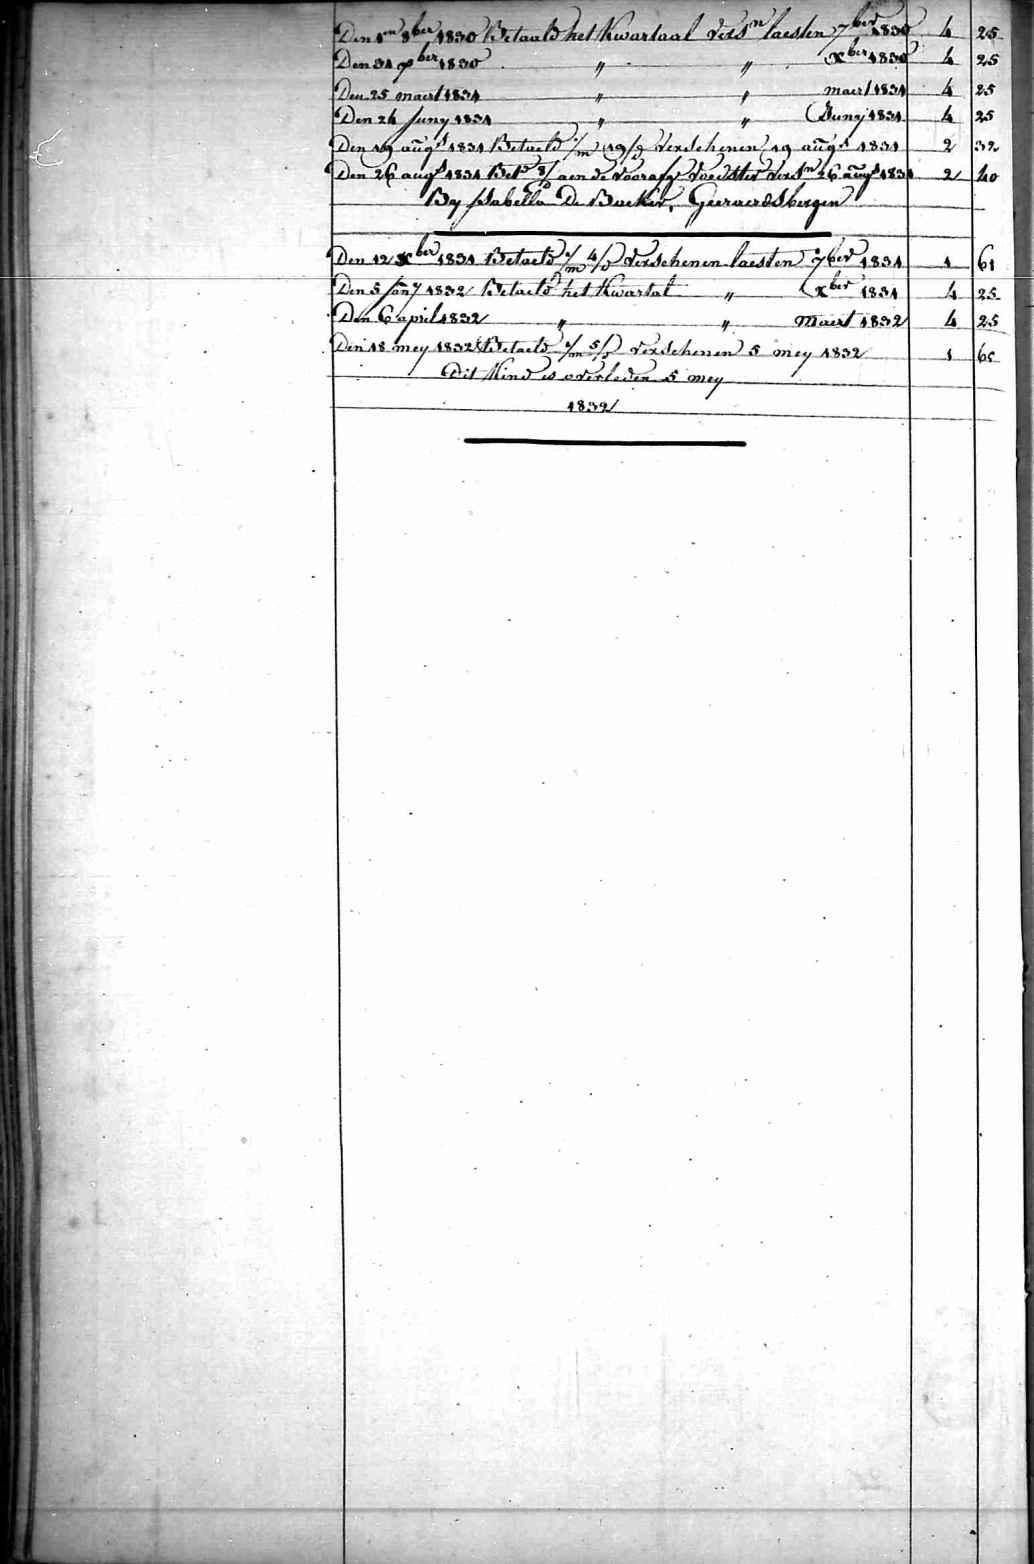 Den 1en 8ber 1830 Betaald het Kwartaal versn laesten 7ber 1830 4 25
Den 31 xber 1830 " " xber 1830 4 25
Den 25 maert 1831 " " maert 1831 4 25
Den 24 Juny 1831 " " Juny 1831 4 25
Den 19 augs 1831 Betaeld 1/m 19/d verschenen 19 augs 1831 2 32
Den 26 augs 1831 Betd aen de voorafge voedster versn 26 augs 1831 2 40
By Isabella De Backer, Geeraerdsbergen
Den 12 xber 1831 Betaeld /m 4/d verschenen laesten 7ber 1831 1 61
Den 5 Jany 1832 Betaeld het Kwartal " xber 1831 4 25
Den 6 april 1832 " " maert 1832 4 25
Den 18 mey 1832 Betaeld 1/m 5/d verschenen 5 mey 1832 1
Dit Kind is overleden 5 mey
1832